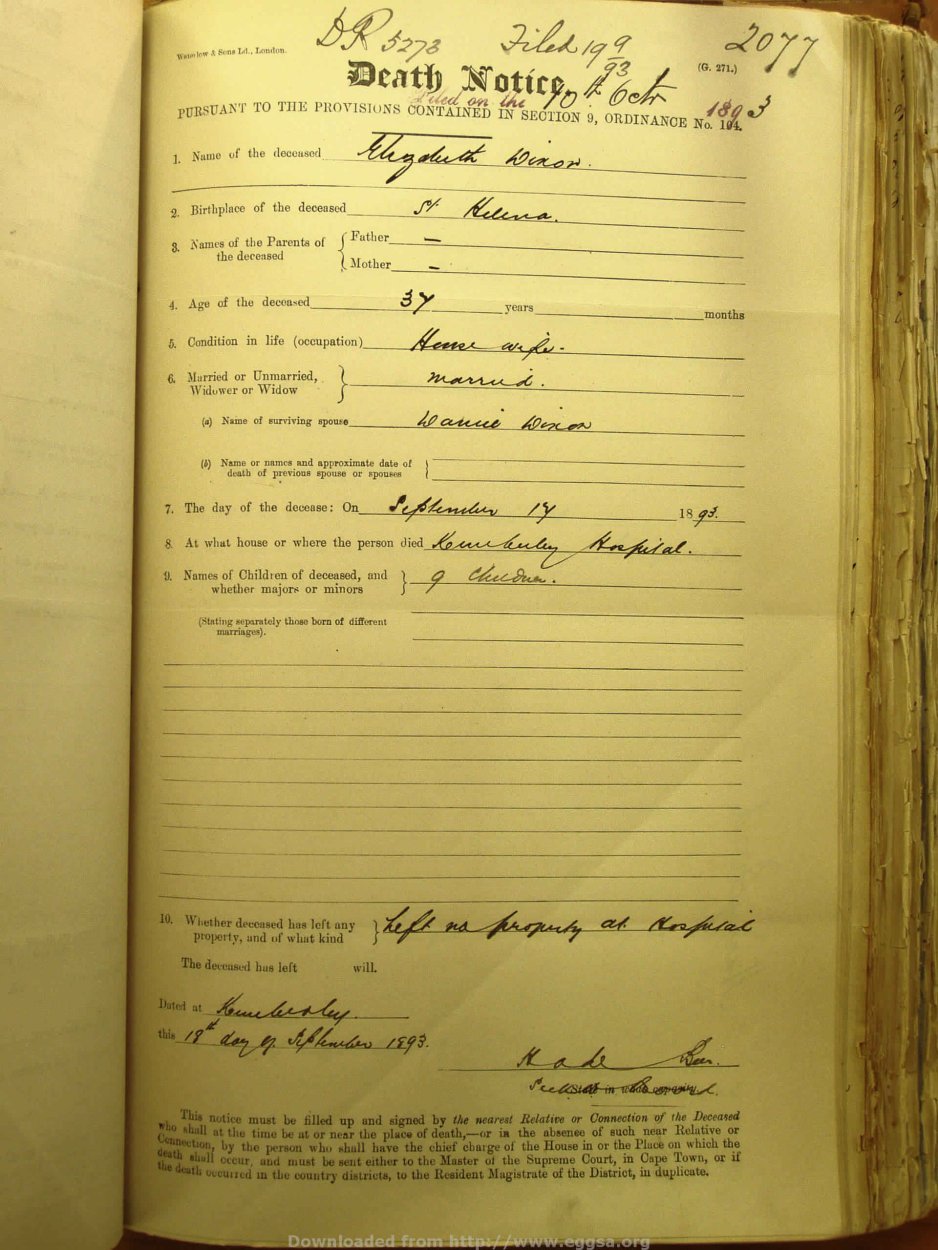 Waterlow & Sons Ld., London.
DR 5273 Filed 19 9/93 2077
Death Notice. (G. 271.)
Filed on the 10th Octr 1893
PURSUANT TO THE PROVISIONS CONTAINED IN SECTION 9, ORDINANCE No. 104.
1. Name of the deceased Elizabeth Dixon.
2. Birthplace of the deceased St Helena.
3. Names of the Parents of the deceased
Father —
Mother —
4. Age of the deceased 37 years months
5. Condition in life (occupation) House wife.
6. Married or Unmarried, Widower or Widow married.
(a) Name of surviving spouse Dixon
(b) Name or names and approximate date of
death of previous spouse or spouses
7. The day of the decease: On September 17 1893.
8. At what house or where the person died Kimberley Hospital.
9. Names of Children of deceased, and 9 Children.
whether majors or minors
(Stating separately those born of different
marriages).
10. Whether deceased has left any Left no property at Hospital
property, and of what kind
The deceased has left will.
Dated at Kimberley.
this 18th day of September 1893.
This notice must be filled up and signed by the nearest Relative or Connection of the Deceased
who shall at the time be at or near the place of death,—or in the absence of such near Relative or
Connection, by the person who shall have the chief charge of the House in or the Place on which the
death shall occur, and must be sent either to the Master of the Supreme Court, in Cape Town, or if
the death occurred in the country districts, to the Resident Magistrate of the District, in duplicate.
Downloaded from http://www.eggsa.org